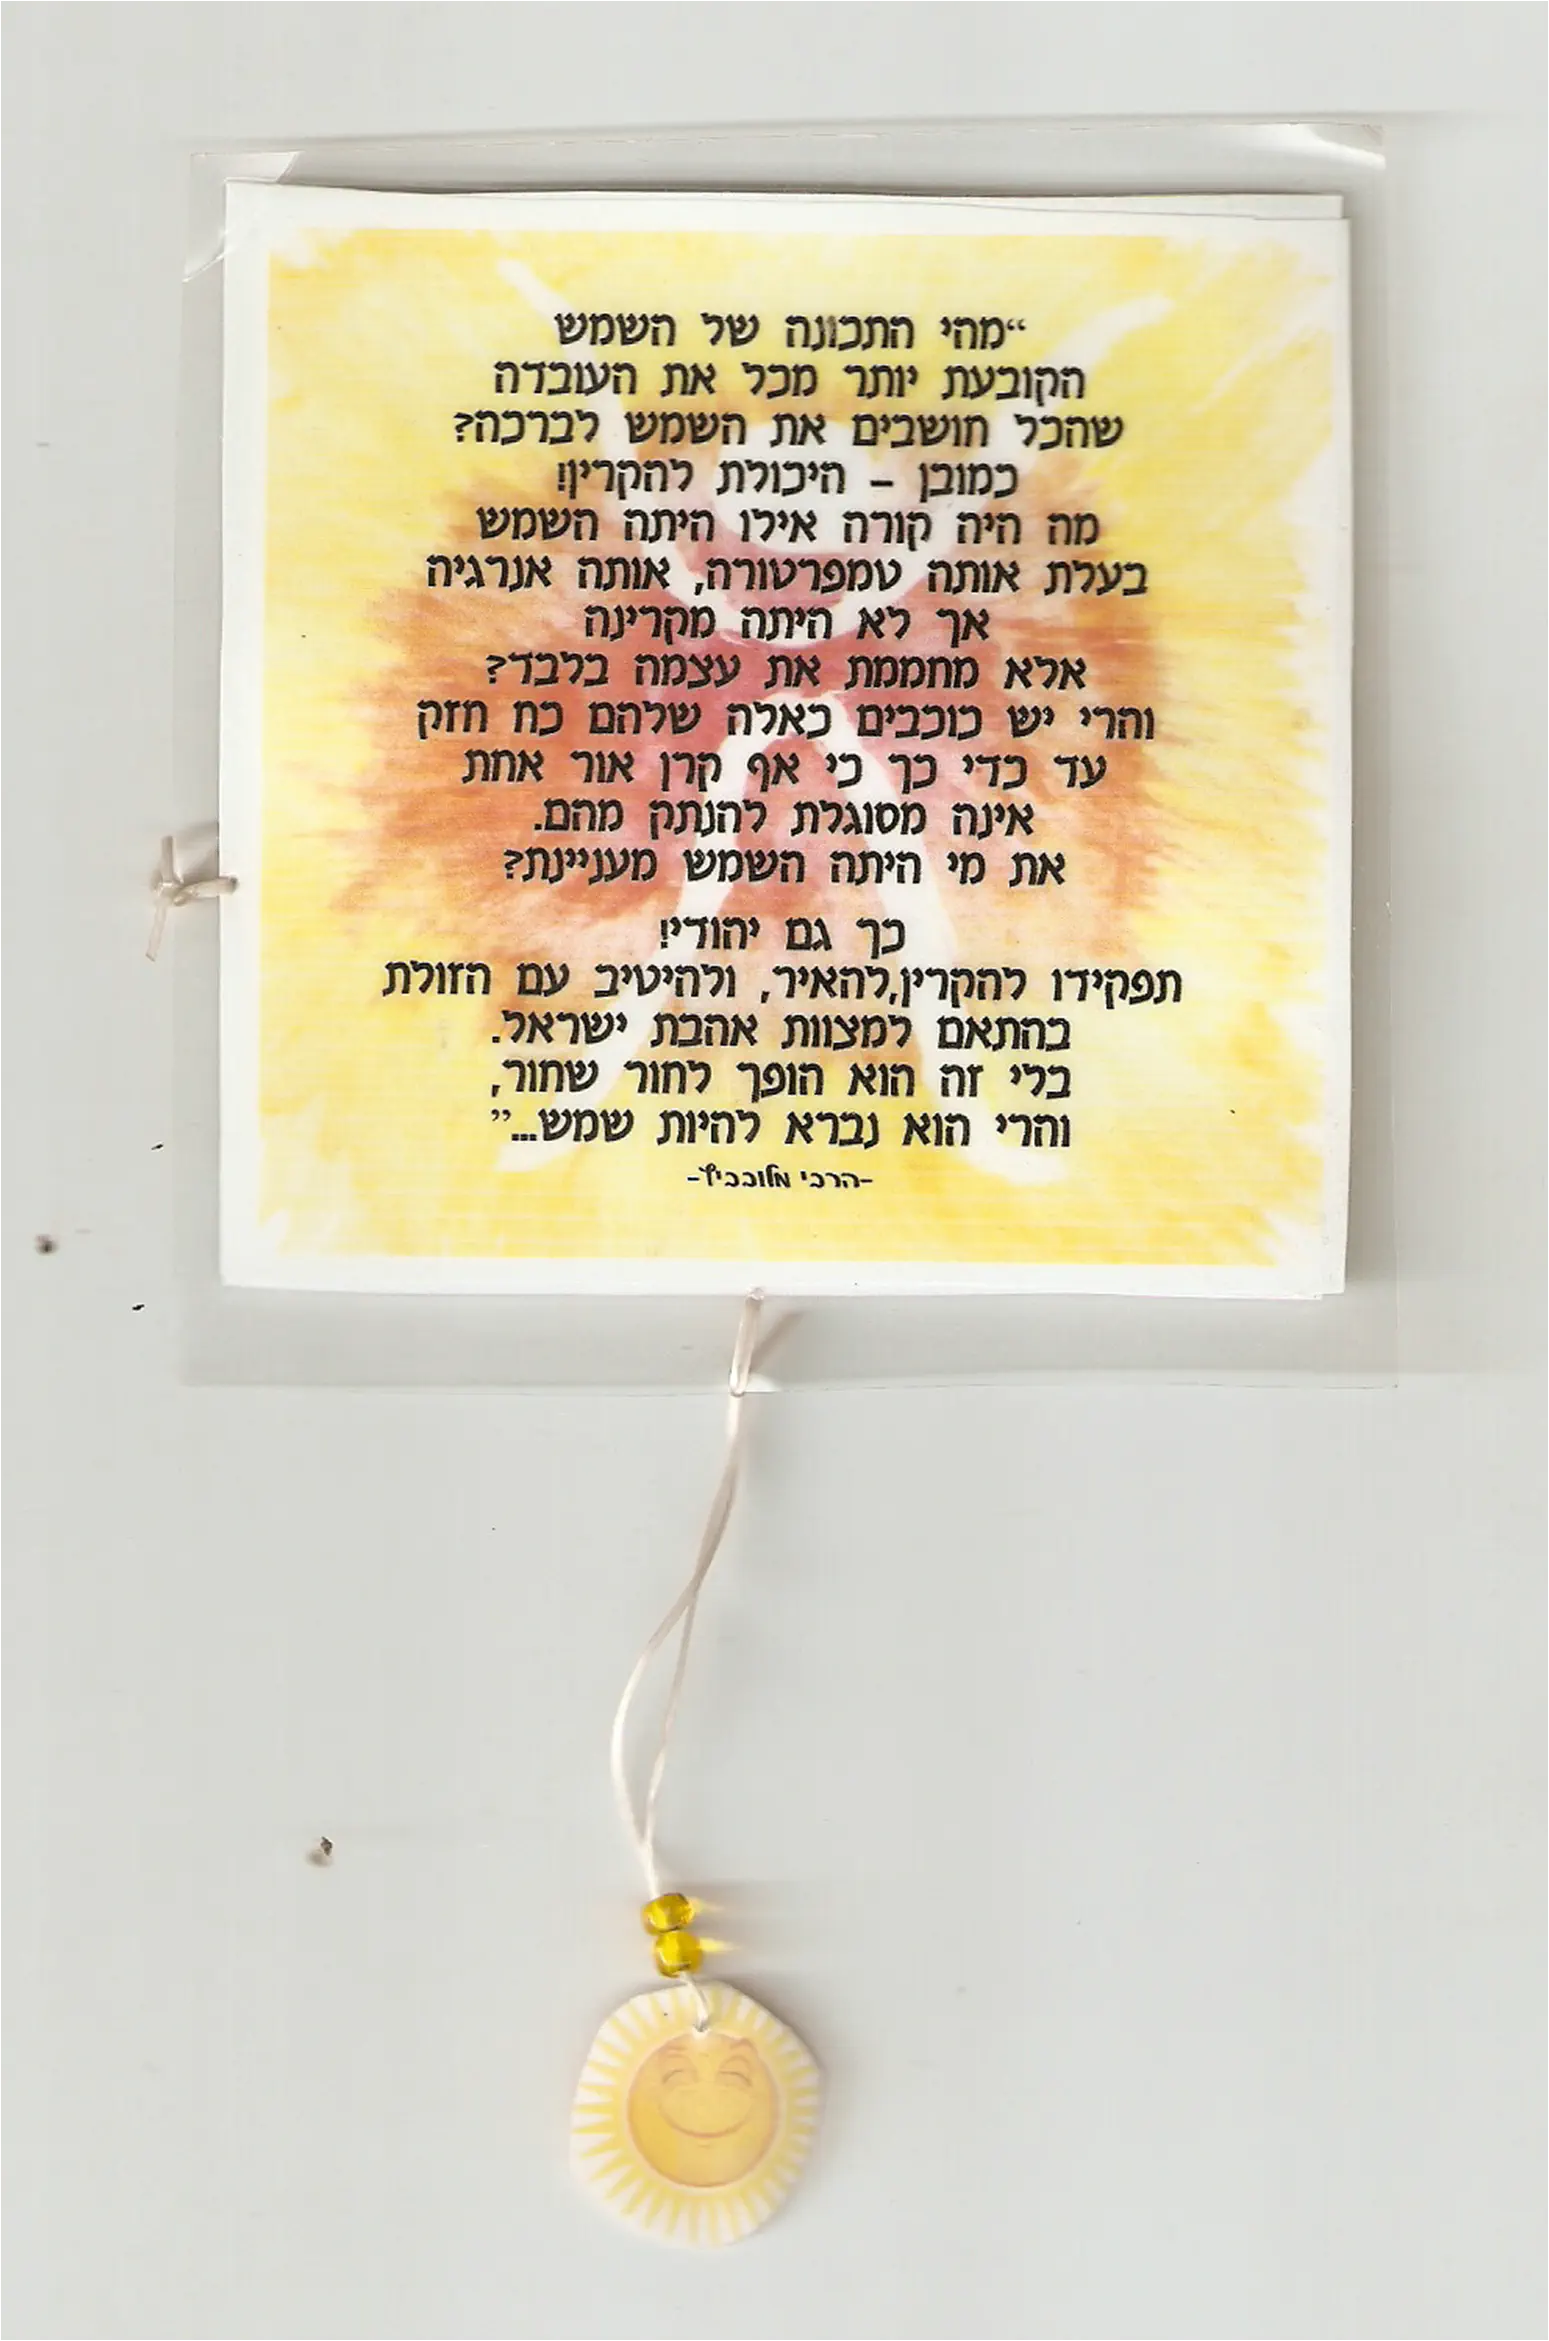 “מהי התכונה של השמש
הקובעת יותר מכל את העובדה
שהכל חושבים את השמש לברכה?
כמובן – היכולת להקרין!
מה היה קורה אילו היתה השמש
בעלת אותה טמפרטורה, אותה אנרגיה
אך לא היתה מקרינה
אלא מחממת את עצמה בלבד?
והרי יש כוכבים כאלה שלהם כח חזק
עד כדי כך כי אף קרן אור אחת
אינה מסוגלת להנתק מהם.
את מי היתה השמש מעניינת?
כך גם יהודי!
תפקידו להקרין,להאיר, ולהיטיב עם הזולת
בהתאם למצוות אהבת ישראל.
בלי זה הוא הופך לחור שחור,
והרי הוא נברא להיות שמש...”
-הרבי מלובביץ-